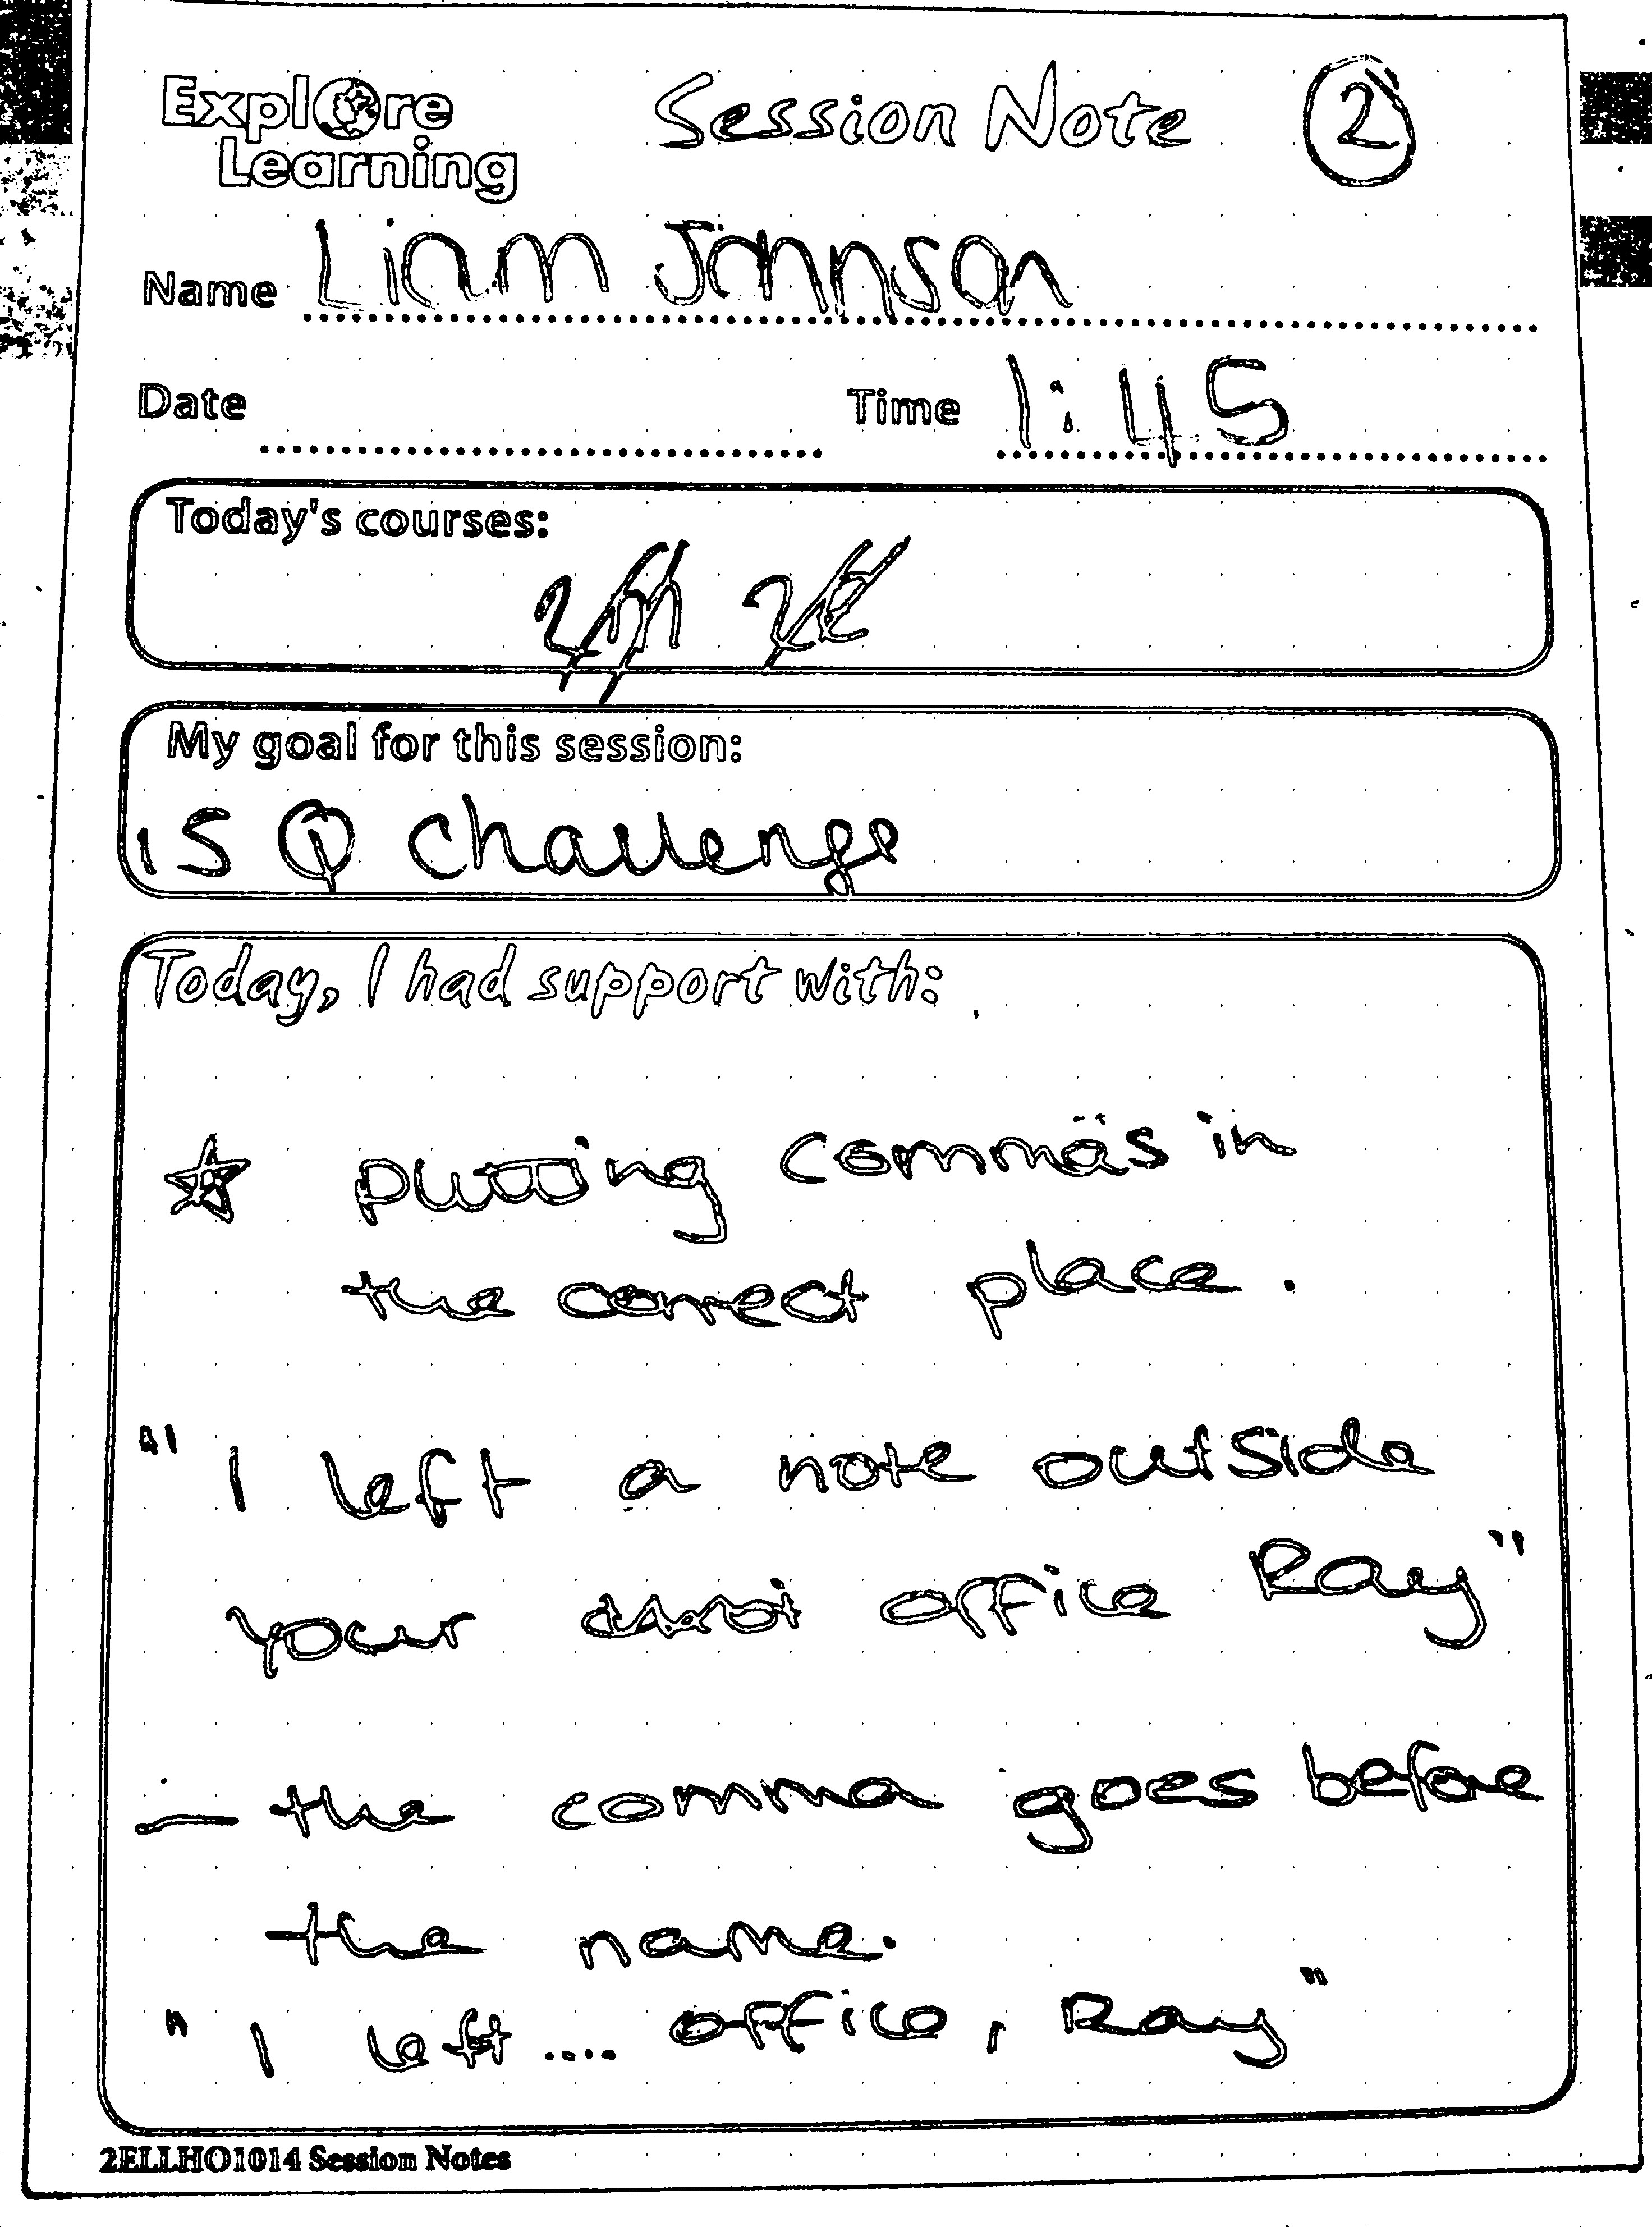 Explore
Learning
Session Note 2
Name Liam Johnson
Date Time 1:45
Today's courses:
My goal for this session:
15 Q challenge
Today, I had support with:
☆ putting commas in
the correct place.
"I left a note outside
your office Ray"
- the comma goes before
the name.
"I left .... office, Ray"
2ELLHO1014 Session Notes